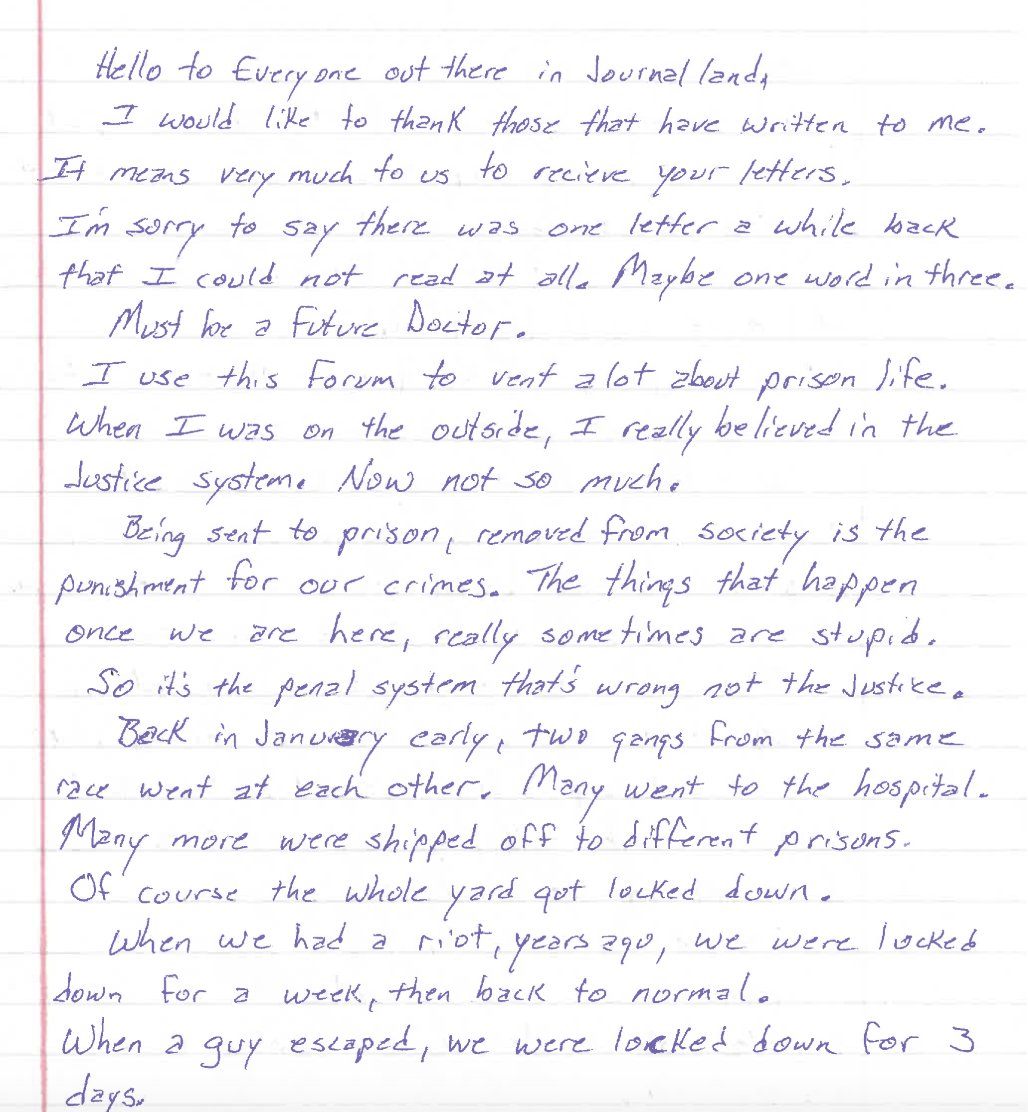 Hello to Everyone out there in Journal land,
I would like to thank those that have written to me.
It means very much to us to recieve your letters.
I'm sorry to say there was one letter a while back
that I could not read at all. Maybe one word in three.
Must be a Future Doctor.
I use this Forum to vent alot about prison life.
When I was on the outside, I really believed in the
Justice system. Now not so much.
Being sent to prison, removed from society is the
punishment for our crimes. The things that happen
once we are here, really sometimes are stupid.
So it's the penal system that's wrong not the Justice.
Back in January early, two gangs from the same
race went at each other. Many went to the hospital.
Many more were shipped off to different prisons.
Of course the whole yard got locked down.
When we had a riot, years ago, we were locked
down for a week, then back to normal.
When a guy escaped, we were locked down for 3
days.